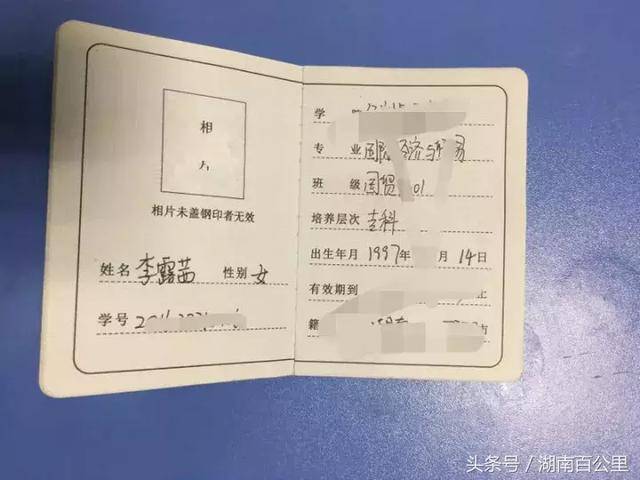 相
片
相片未盖钢印者无效
姓名 李露茜 性别 女
学号
学
专业 国际经济与贸易
班级 国贸 01
培养层次 专科
出生年月 1997年 月 14日
有效期到 止
籍
头条号／湖南百公里